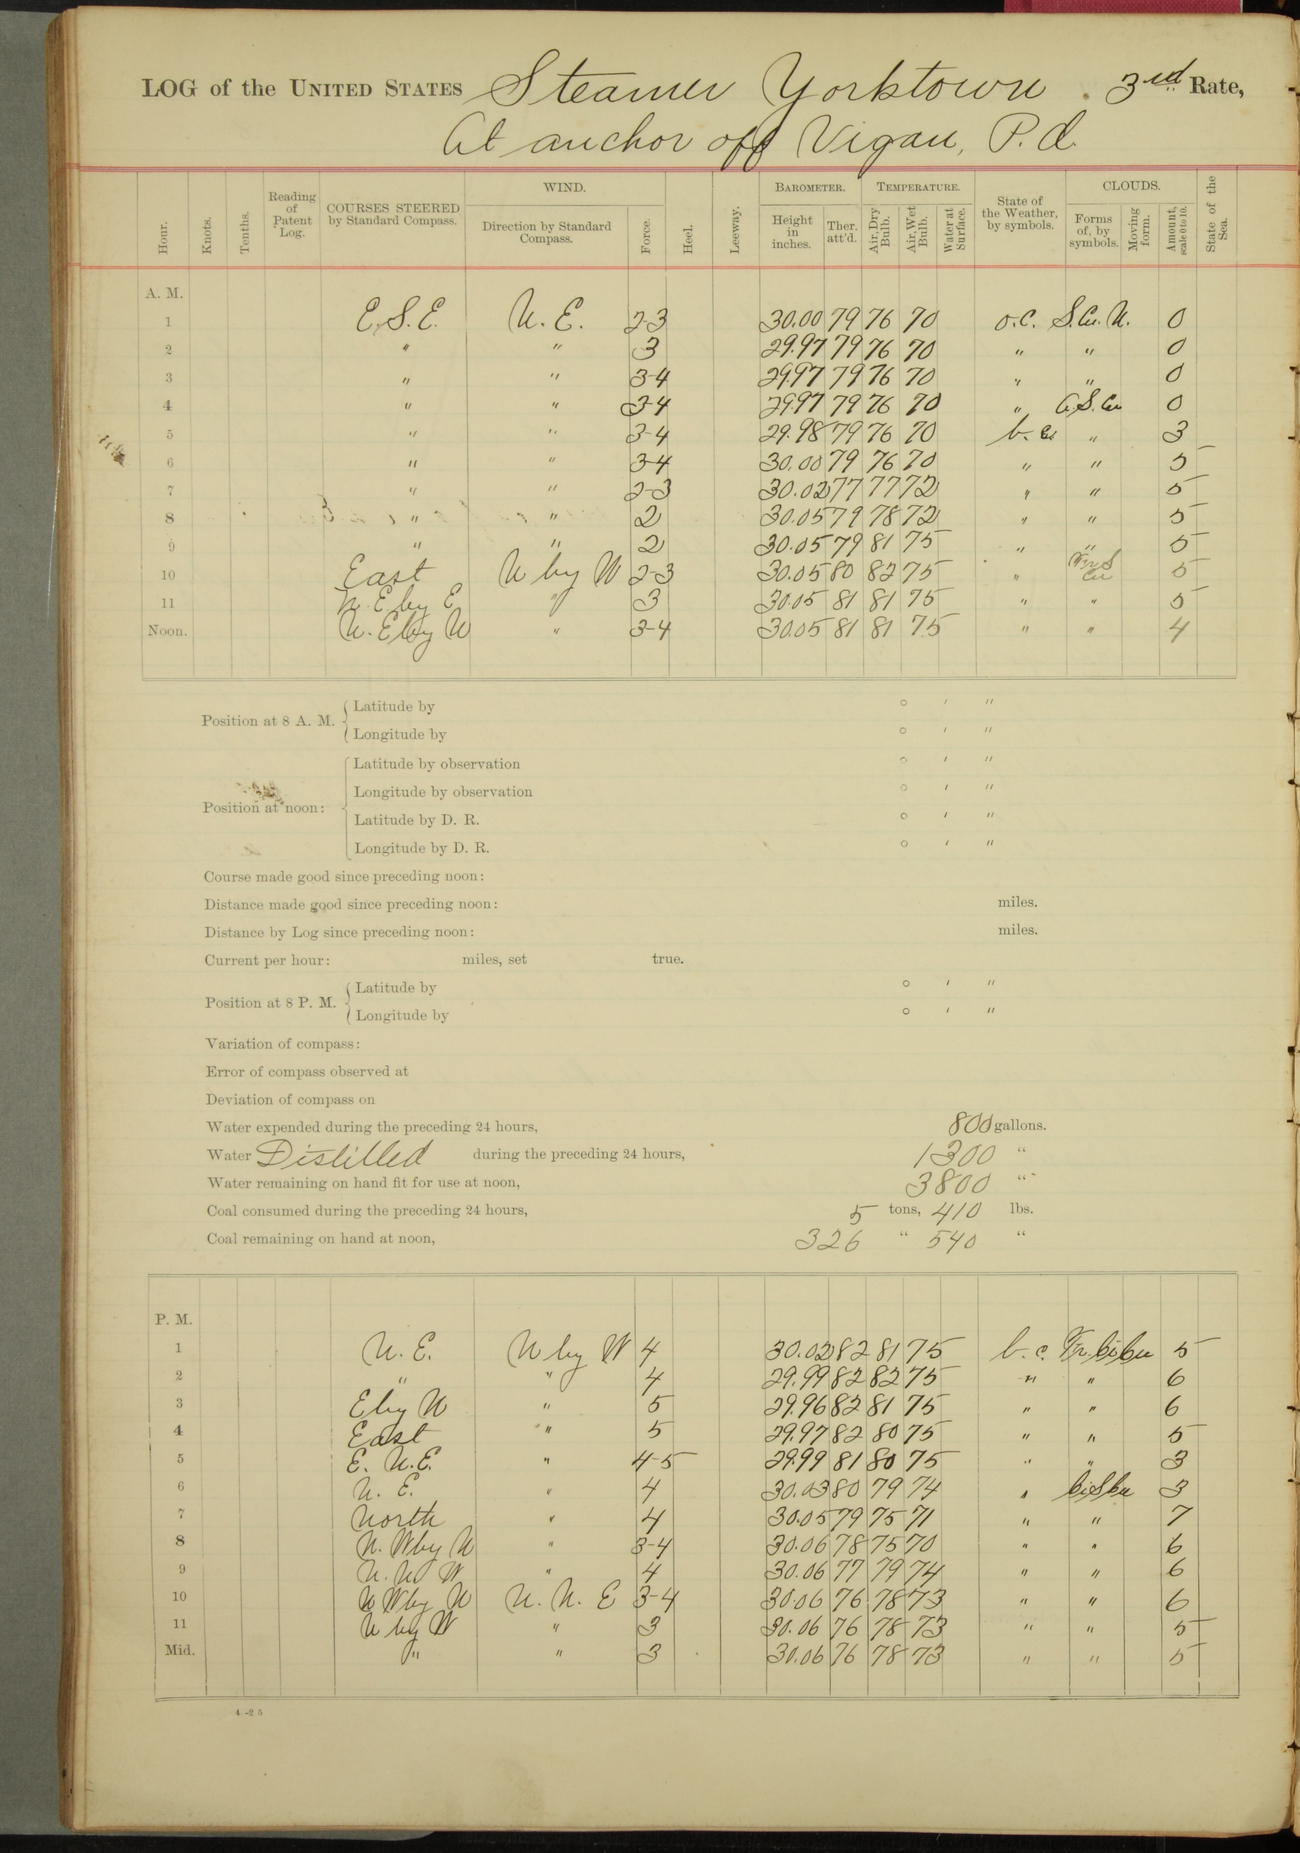 LOG of the UNITED STATES Steamer Yorktown . 3rd Rate,
At anchor off Vigan, P.I.
Hour. Knots. Tenths. Reading of Patent Log. COURSES STEERED by Standard Compass. WIND. Direction by Standard Compass. Force. Heel. Leeway. BAROMETER. Height in inches. Ther. att'd. TEMPERATURE. Air, Dry Bulb. Air, Wet Bulb. Water at Surface. State of the Weather, by symbols. CLOUDS. Forms of, by symbols. Moving form. Amount, scale 0 to 10. State of the Sea.
A. M.
1 E.S.E. N.E. 2-3 30.00 79 76 70 o.c. S.Cu.N. 0
2 " " 3 29.97 79 76 70 " " 0
3 " " 3-4 29.97 79 76 70 " " 0
4 " " 3-4 29.97 79 76 70 " C.S.Cu 0
5 " " 3-4 29.98 79 76 70 b.c. " 3
6 " " 3-4 30.00 79 76 70 " " 5
7 " " 2-3 30.02 77 77 72 " " 5
8 " " 2 30.05 79 78 72 " " 5
9 " " 2 30.05 79 81 75 " " 5
10 East N by W 2-3 30.05 80 82 75 " Fr.S Cu 5
11 N.E by E " 3 30.05 81 81 75 " " 5
Noon. N.E by N " 3-4 30.05 81 81 75 " " 4
Position at 8 A. M. Latitude by ° ' "
Longitude by ° ' "
Position at noon: Latitude by observation ° ' "
Longitude by observation ° ' "
Latitude by D. R. ° ' "
Longitude by D. R. ° ' "
Course made good since preceding noon:
Distance made good since preceding noon: miles.
Distance by Log since preceding noon: miles.
Current per hour: miles, set true.
Position at 8 P. M. Latitude by ° ' "
Longitude by ° ' "
Variation of compass:
Error of compass observed at
Deviation of compass on
Water expended during the preceding 24 hours, 800 gallons.
Water Distilled during the preceding 24 hours, 1300 "
Water remaining on hand fit for use at noon, 3800 "
Coal consumed during the preceding 24 hours, 5 tons, 410 lbs.
Coal remaining on hand at noon, 326 " 540 "
P. M.
1 N.E. N by W 4 30.02 82 81 75 b.c. Fr.Ci.Cu 5
2 " " 4 29.99 82 82 75 " " 6
3 E by N " 5 29.96 82 81 75 " " 6
4 East " 5 29.97 82 80 75 " " 5
5 E. N.E. " 4-5 29.99 81 80 75 " " 3
6 N. E. " 4 30.03 80 79 74 " Ci.S.Cu 3
7 North " 4 30.05 79 75 71 " " 7
8 N. W by N " 3-4 30.06 78 75 70 " " 6
9 N.N W " 4 30.06 77 79 74 " " 6
10 N W by N N. N. E 3-4 30.06 76 78 73 " " 6
11 N by W " 3 30.06 76 78 73 " " 5
Mid. " " 3 30.06 76 78 73 " " 5
4-25